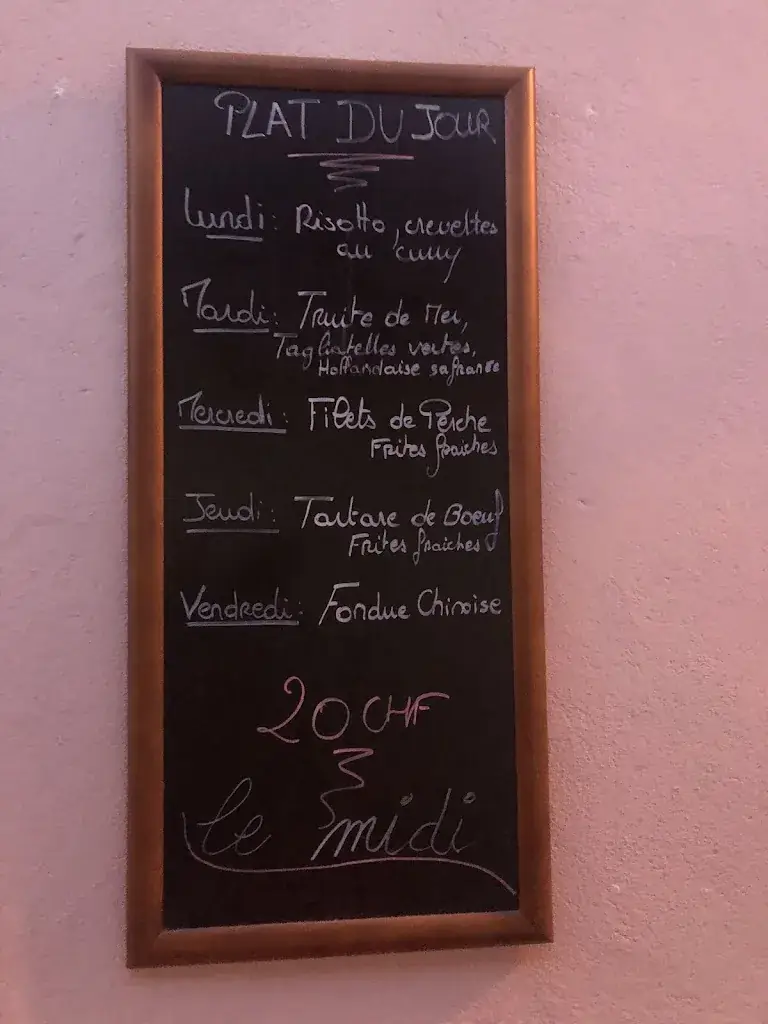 PLAT DU JOUR
Lundi : Risotto, crevettes
au curry
Mardi : Truite de Mer,
Tagliatelles vertes,
Hollandaise safranée
Mercredi : Filets de Perche
Frites fraiches
Jeudi : Tartare de Boeuf
Frites fraiches
Vendredi : Fondue Chinoise
20 CHF
le midi